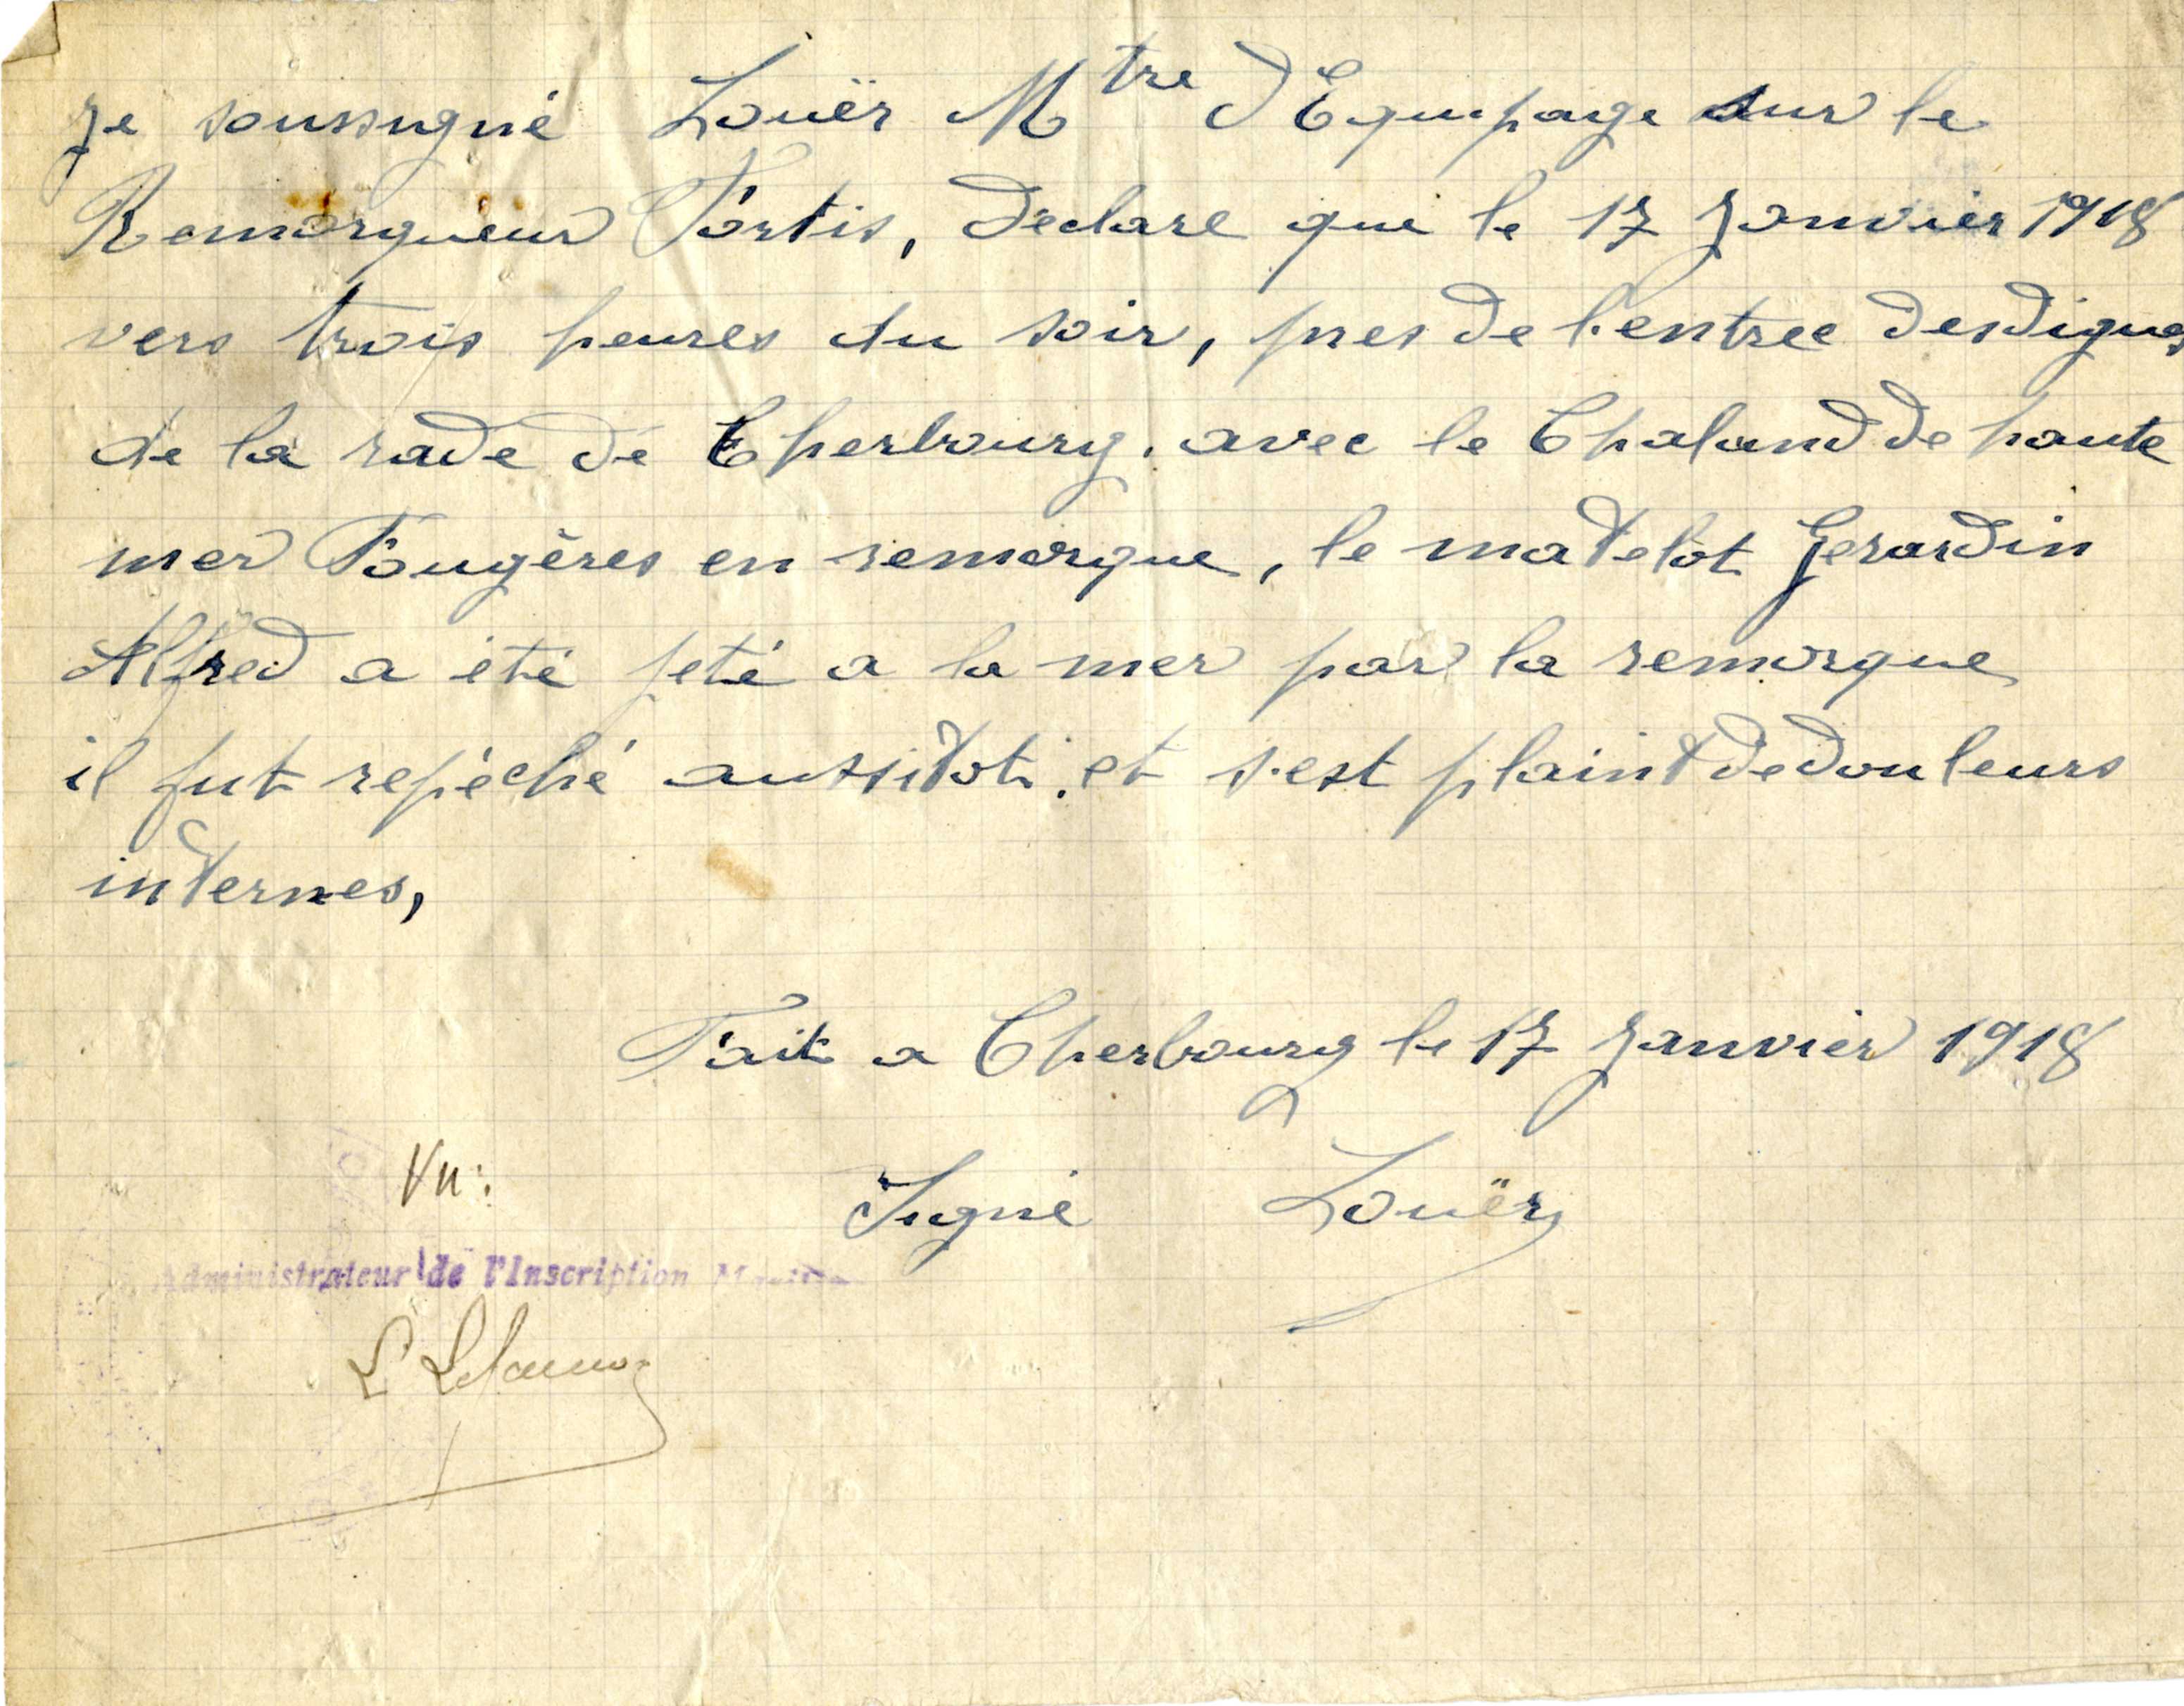 Je soussigné Louër Mtre d'Equipage sur le
Remorqueur Fortis, déclare que le 17 Janvier 1918
vers trois heures du soir, pres de l'entree des digues
de la rade de Cherbourg. avec le Chaland de haute
mer Fougères en remorque, le matelot Gerardin
Alfred a été jeté a la mer par la remorque
il fut repéché aussitot. et s'est plaint de douleurs
internes,
Fait a Cherbourg le 17 Janvier 1918
Vu:
Signé Louër
Administrateur de l'Inscription